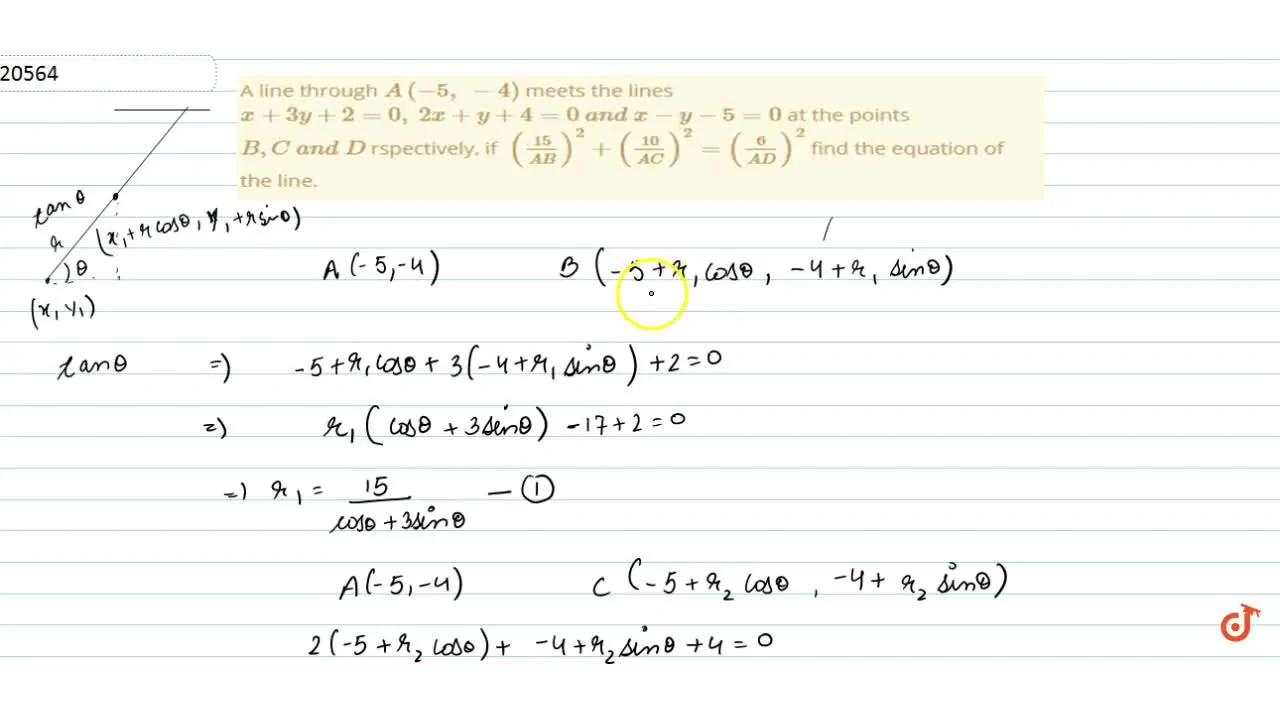 20564
A line through A (−5, −4) meets the lines
x + 3y + 2 = 0, 2x + y + 4 = 0 and x − y − 5 = 0 at the points
B, C and D rspectively. if (15/AB)² + (10/AC)² = (6/AD)² find the equation of
the line.
tanθ
r
(x₁+r cosθ, y₁+r sinθ)
θ
(x₁ y₁)
A (-5,-4) B (-5+r₁ cosθ, -4+r₁ sinθ)
tanθ =) -5+r₁cosθ + 3(-4+r₁ sinθ) +2=0
=) r₁ (cosθ + 3sinθ) -17+2=0
=) r₁ = 15/(cosθ+3sinθ) — ①
A(-5,-4) C (-5+r₂ cosθ, -4+ r₂ sinθ)
2(-5+r₂ cosθ)+ -4+r₂sinθ +4=0